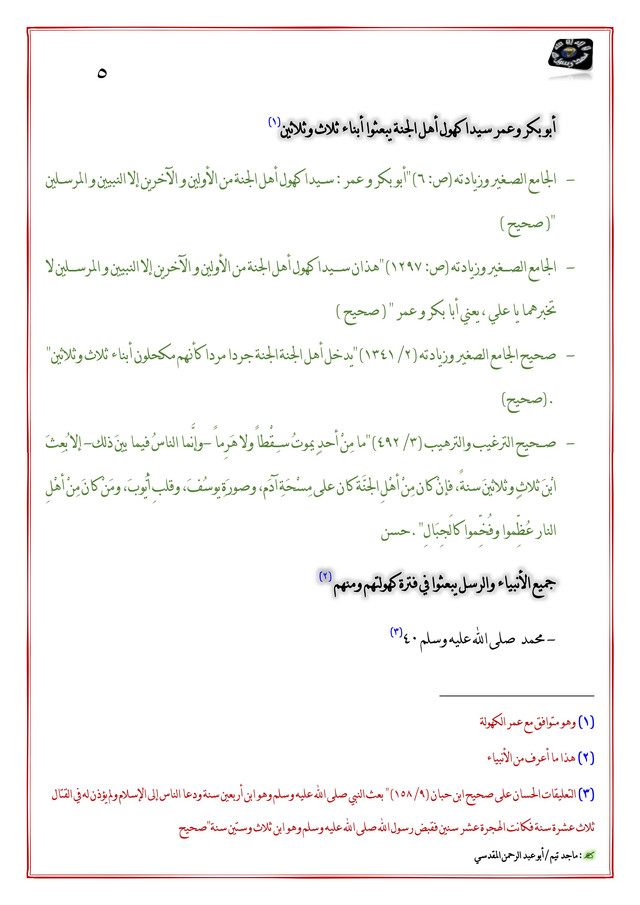 ٥
أبو بكر وعمر سيدا كهول أهل الجنة يبعثوا أبناء ثلاث وثلاثين(١)
– الجامع الصغير وزيادته (ص: ٦) "أبو بكر و عمر : سيدا كهول أهل الجنة من الأولين و الآخرين إلا النبيين و المرسلين
"( صحيح )
– الجامع الصغير وزيادته (ص: ١٢٩٧) "هذان سيدا كهول أهل الجنة من الأولين و الآخرين إلا النبيين و المرسلين لا
تخبرهما يا علي ، يعني أبا بكر و عمر " ( صحيح )
– صحيح الجامع الصغير وزيادته (٢/ ١٣٤١) "يدخل أهل الجنة الجنة جردا مردا كأنهم مكحلون أبناء ثلاث وثلاثين"
. (صحيح)
– صحيح الترغيب والترهيب (٣/ ٤٩٢) "ما مِنْ أحدٍ يموتُ سِقْطاً ولا هَرِماً –وإنَّما الناسُ فيما بينَ ذلك– إلا بُعِثَ
ابْنَ ثلاثٍ وثلاثينَ سنةً، فإنْ كان مِنْ أهْلِ الجنَّة كان على مِسْحَةِ آدَم، وصورَة يوسُفَ، وقلبِ أيُّوبَ، ومَنْ كانَ مِنْ أهْلِ
النار عُظِّموا وفُخِّموا كالجِبَالِ" . حسن
جميع الأنبياء والرسل يبعثوا في فترة كهولتهم ومنهم (٢)
– محمد صلى الله عليه وسلم ٤٠(٣)
(١) وهو متوافق مع عمر الكهولة
(٢) هذا ما أعرف من الأنبياء
(٣) التعليقات الحسان على صحيح ابن حبان (٩/ ١٥٨) " بعث النبي صلى الله عليه وسلم وهو ابن أربعين سنة ودعا الناس إلى الإسلام ولم يؤذن له في القتال
ثلاث عشرة سنة فكانت الهجرة عشر سنين فقبض رسول الله صلى الله عليه وسلم وهو ابن ثلاث وستين سنة" صحيح
: ماجد تيم / أبو عبد الرحمن المقدسي